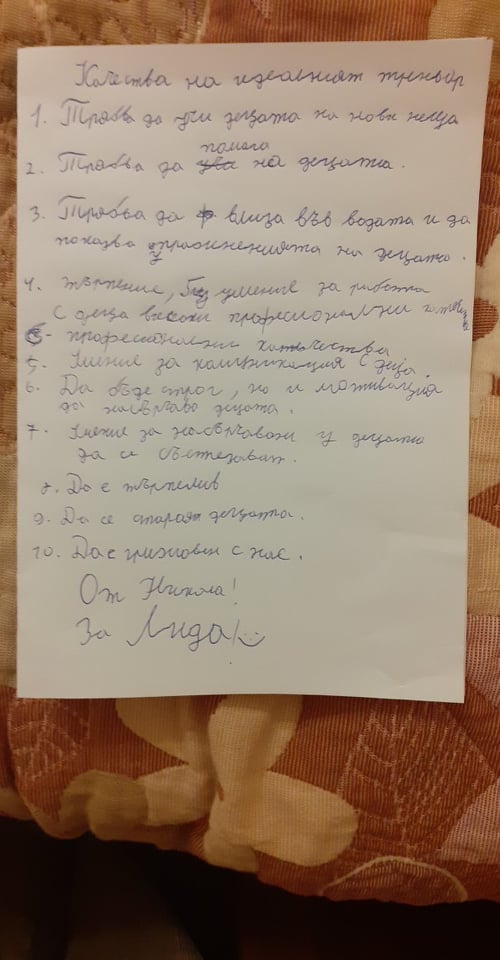 Качества на идеалният треньор
1. Трябва да учи децата на нови неща
помага
2. Трябва да на децата.
3. Трябва да влиза във водата и да
показва упражненията на децата.
4. Търпение, умение за работа
с деца високи професионални
професионални качества
5. Умение за комуникация с деца.
6. Да бъде строг, но и мотивация
да насърчава децата.
7. Умение за насърчаване у децата
да се състезават.
8. Да е търпелив
9. Да се старая децата.
10. Да е грижовен с нас.
От Никола!
За Лида!